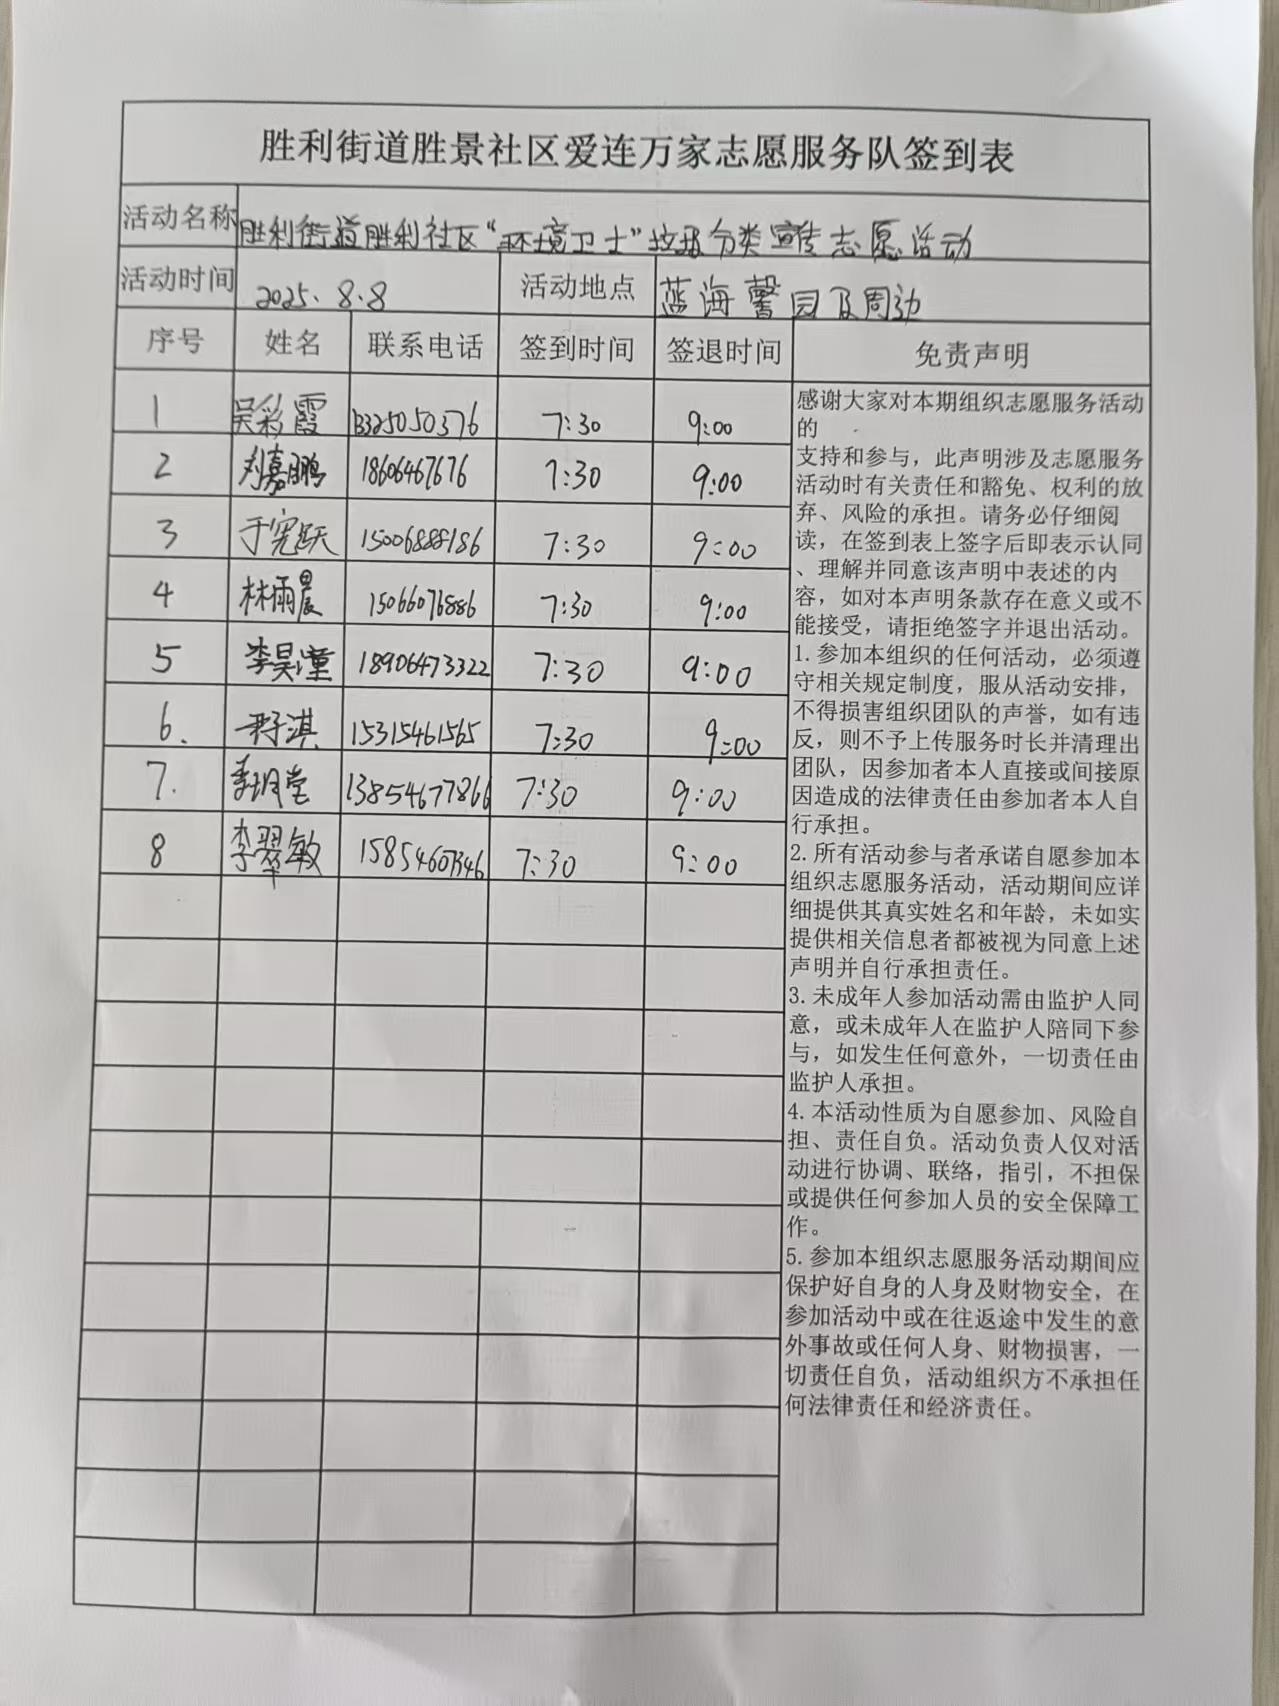 胜利街道胜景社区爱连万家志愿服务队签到表
活动名称 胜利街道胜利社区“环境卫士”垃圾分类宣传志愿活动
活动时间 2025.8.8 活动地点 蓝海馨园及周边
序号 姓名 联系电话 签到时间 签退时间 免责声明
1 吴彩霞 13325050376 7:30 9:00
2 刘嘉鹏 18606467676 7:30 9:00
3 于宪跃 15006888186 7:30 9:00
4 林雨晨 15066076886 7:30 9:00
5 李昊潼 18906473322 7:30 9:00
6. 淇 15315461565 7:30 9:00
7. 堂 13854677866 7:30 9:00
8 李翠敏 15854607346 7:30 9:00
感谢大家对本期组织志愿服务活动
的
支持和参与，此声明涉及志愿服务
活动时有关责任和豁免、权利的放
弃、风险的承担。请务必仔细阅
读，在签到表上签字后即表示认同
、理解并同意该声明中表述的内
容，如对本声明条款存在意义或不
能接受，请拒绝签字并退出活动。
1.参加本组织的任何活动，必须遵
守相关规定制度，服从活动安排，
不得损害组织团队的声誉，如有违
反，则不予上传服务时长并清理出
团队，因参加者本人直接或间接原
因造成的法律责任由参加者本人自
行承担。
2.所有活动参与者承诺自愿参加本
组织志愿服务活动，活动期间应详
细提供其真实姓名和年龄，未如实
提供相关信息者都被视为同意上述
声明并自行承担责任。
3.未成年人参加活动需由监护人同
意，或未成年人在监护人陪同下参
与，如发生任何意外，一切责任由
监护人承担。
4.本活动性质为自愿参加、风险自
担、责任自负。活动负责人仅对活
动进行协调、联络，指引，不担保
或提供任何参加人员的安全保障工
作。
5.参加本组织志愿服务活动期间应
保护好自身的人身及财物安全，在
参加活动中或在往返途中发生的意
外事故或任何人身、财物损害，一
切责任自负，活动组织方不承担任
何法律责任和经济责任。